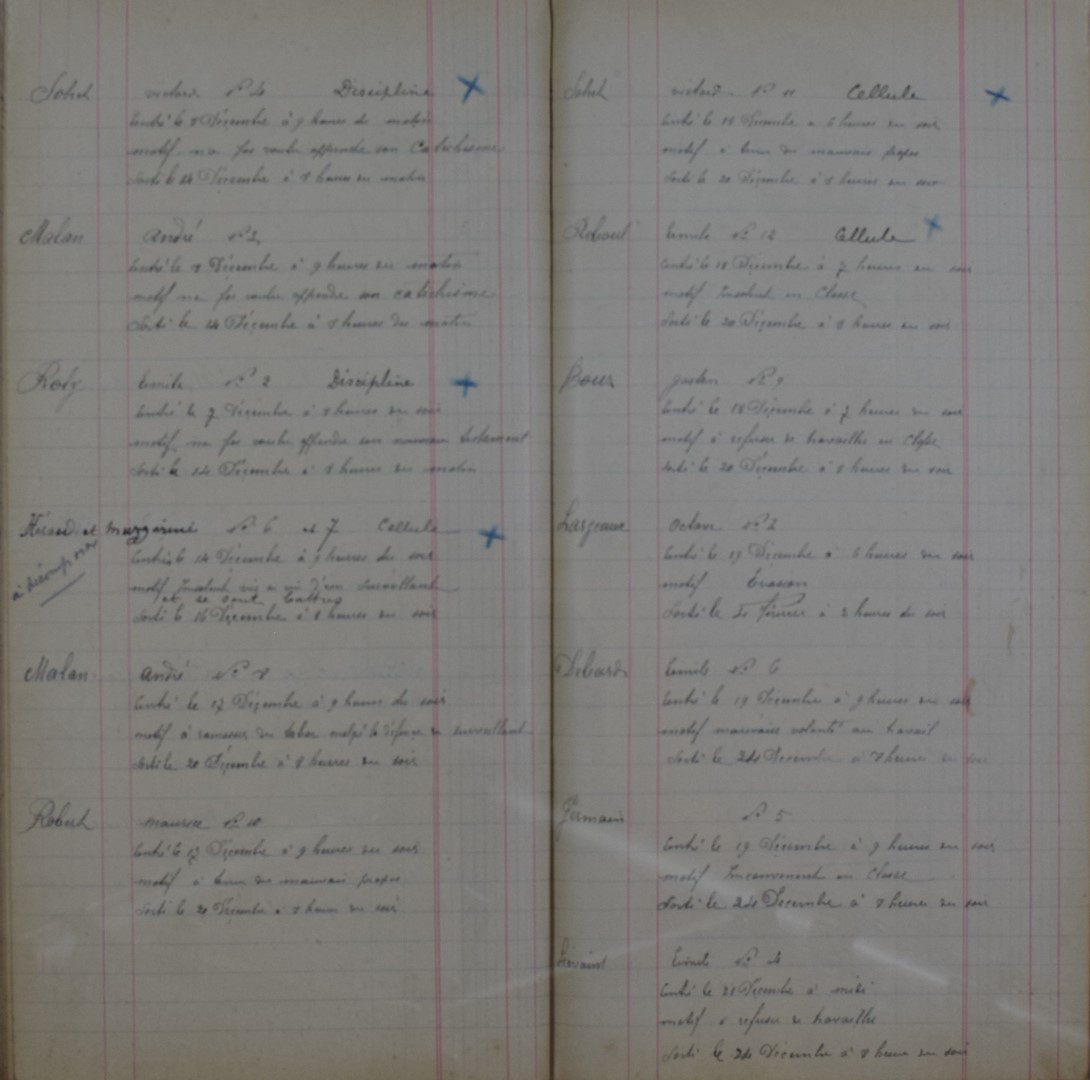 Victor N° 4 Discipline
Entré le 8 Décembre à 9 heures du matin
motif na pas voulu apprendre son Catechisme
Sorti le 14 Décembre à 8 heures du matin
Malan André N° 2
Entré le 8 Décembre à 9 heures du matin
motif na pas voulu apprendre son catéchisme
Sorti le 14 Décembre à 8 heures du matin
Emile N° 2 Discipline
Entré le 7 Décembre à 8 heures du soir
motif na pas voulu apprendre son nouveau testament
Sorti le 14 Décembre à 8 heures du matin
et N° 6 et 7 Cellule
Entrés le 14 Décembre à 9 heures du soir
à
motif Insolent vis a vis d'un Surveillant
et se sont battus
Sorti le 16 Décembre à 8 heures du soir
Malan André N° 8
Entré le 17 Décembre à 9 heures du soir
motif à ramasser du tabac malgré la défense du surveillant
Sorti le 20 Décembre à 8 heures du soir
Robert maurice N°
Entré le 17 Décembre à 9 heures du soir
motif à tenu de mauvais propos
Sorti le 20 Décembre à 8 heures du soir
Victor N° 11 Cellule
Entré le 18 Décembre à 6 heures du soir
motif à tenu de mauvais propos
Sorti le 20 Décembre à 8 heures du soir
Emile N° 12 Cellule
Entré le 18 Décembre à 7 heures du soir
motif Insolent en Classe
Sorti le 20 Décembre à 8 heures du soir
N° 9
Entré le 18 Décembre à 7 heures du soir
motif à refuser de travailler en Classe
Sorti le 20 Décembre à 8 heures du soir
Largeaux Octave N° 2
Entré le 19 Décembre à 6 heures du soir
motif Evasion
Sorti le Février à 2 heures du soir
Emile N° 6
Entré le 19 Décembre à 9 heures du soir
motif mauvaise volonté au travail
Sorti le 24 Décembre à 8 heures du soir
Germain N° 5
Entré le 19 Décembre à 9 heures du soir
motif Inconvenant en Classe
Sorti le 24 Decembre à 8 heures du soir
Emile N° 4
Entré le 21 Décembre à midi
motif à refuser de travailler
Sorti le 24 Décembre à 8 heures du soir